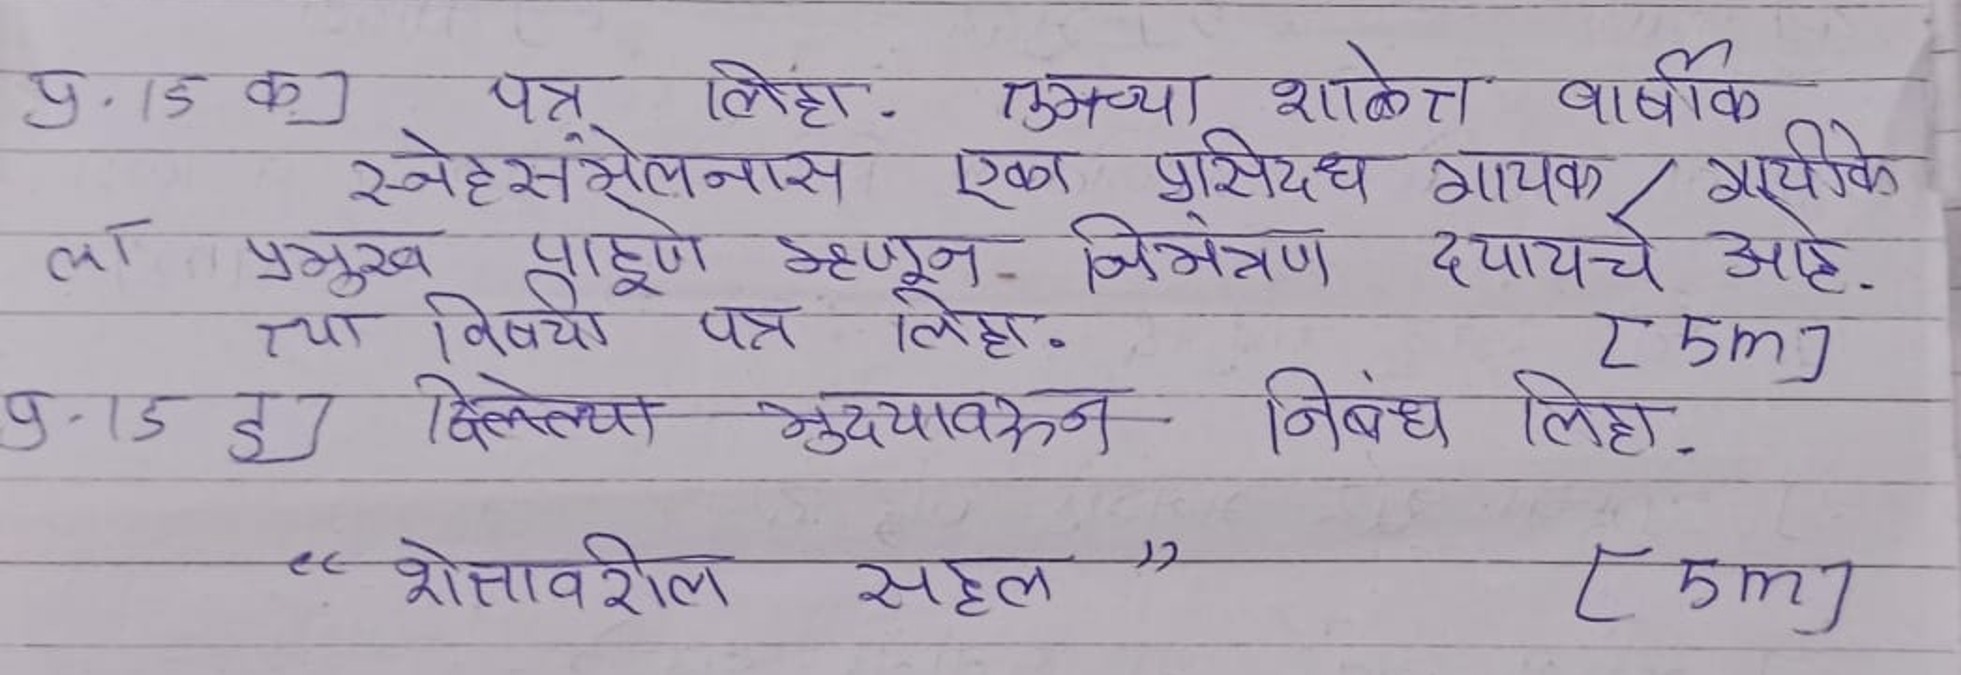 प्र.15 क] पत्र लिहा. तुमच्या शाळेत वार्षीक
स्नेहसंमेलनास एका प्रसिदध गायक / गायीके
ला प्रमुख पाहूणे म्हणून निमंत्रण दयायचे आहे.
त्या विषयी पत्र लिहा. [5m]
प्र.15 इ] दिलेल्या मुदयावरून निबंध लिहा.
“शेतावरील सहल” [5m]